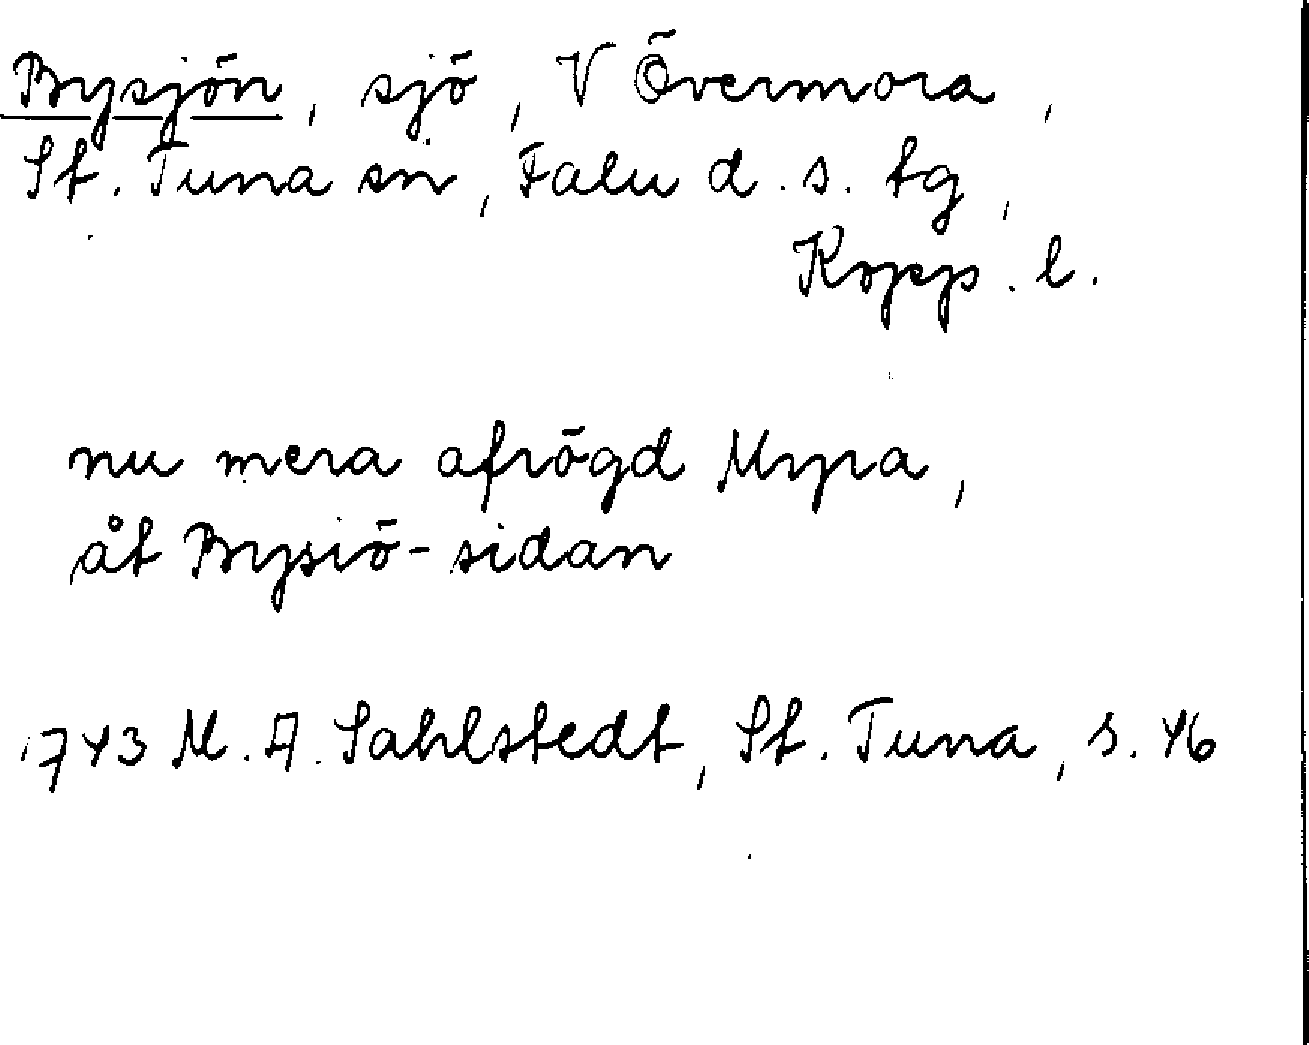 Bysjön, sjö, V Övermora,
St. Tuna sn, Falu d. s. tg,
Kopp. l.
nu mera afrögd Myra,
åt Bysiö-sidan
1743 M. A. Sahlstedt, St. Tuna, s. 46